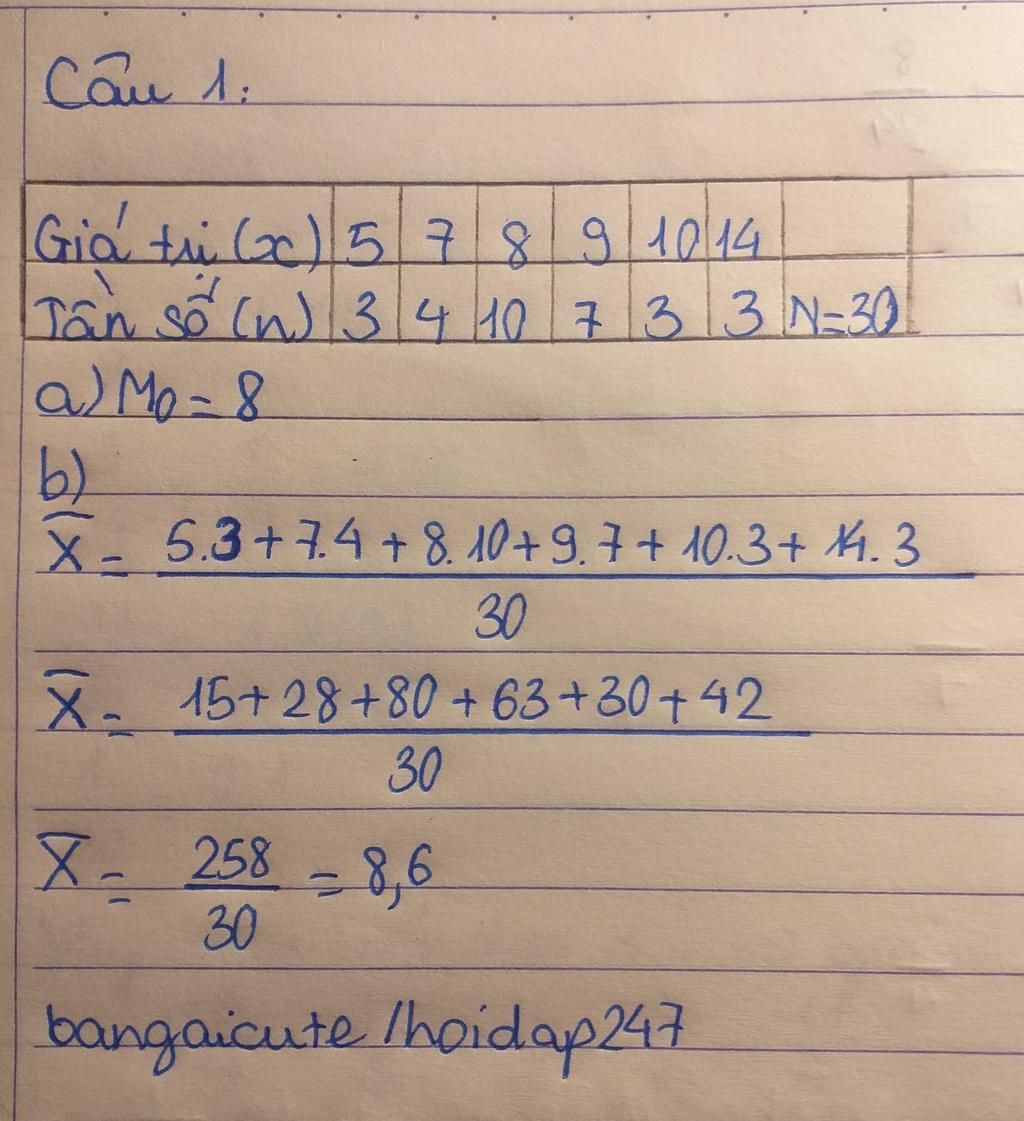 Câu 1:
Giá trị (x) 5 7 8 9 10 14
Tần số (n) 3 4 10 7 3 3 N=30
a) M0 = 8
b)
X̄ = 5.3+7.4+8.10+9.7+10.3+14.3
30
X̄ = 15+28+80+63+30+42
30
X̄ = 258 = 8,6
30
bangaicute/hoidap247